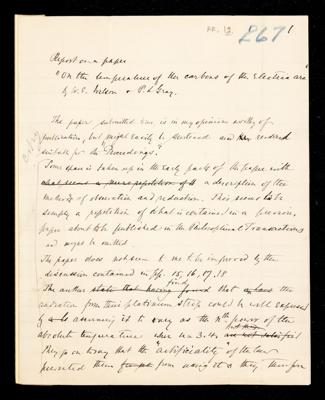 RR. 12 267 1
Report on a paper
"On the temperature of the carbons of the Electric arc
by W. E. Wilson & P. L. Gray.
The paper submitted ... is in my opinion worthy of
publication, but might easily be shortened and rendered
suitable for the "Proceedings".
Some space is taken up in the early parts of the paper with
what seems a mere repetition of a description of the
methods of observation and reduction. This seems to be
simply a repetition of what is contained in a previous
paper about to be published in the Philosophical Transactions
and might be omitted.
The paper does not seem to me to be improved by the
discussion contained in pp. 15, 16, 17, 18
find
The authors state that having found that a law the
radiation from their platinum strip could be well expressed
by assuming it to vary as the nth power of the
absolute temperature when n = 3.4, but
They go on to say that the "artificiality" of the law
prevented them from using it & they therefore